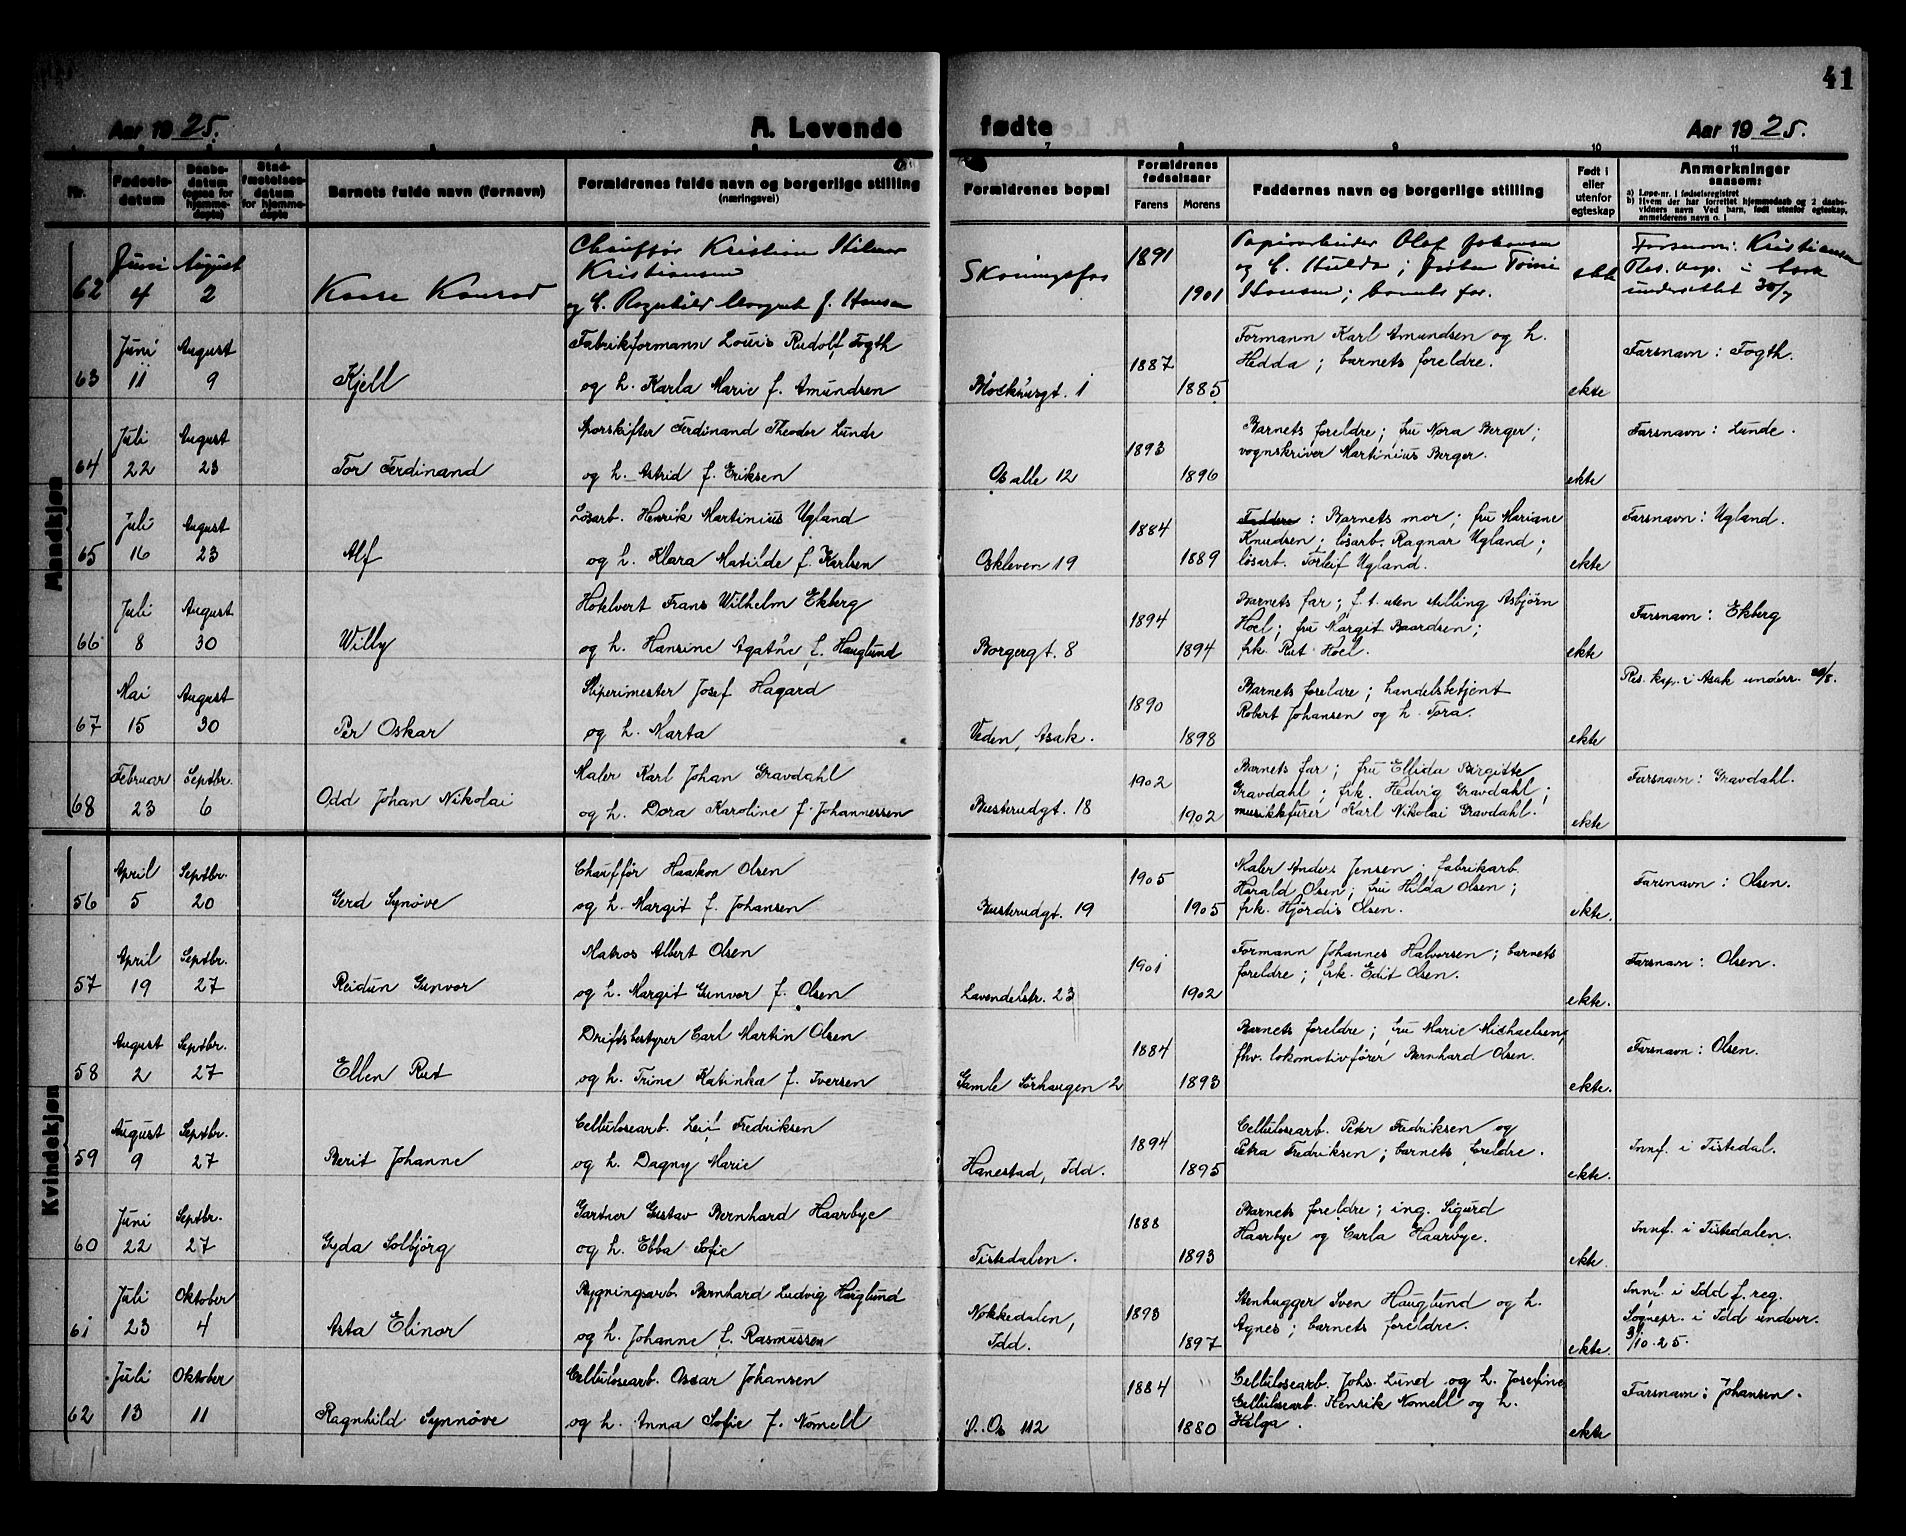 41
Aar 1925.
A. Levende
fødte
Aar 1925.
Nr.
Fødsels-
datum
Daabs-
datum
(ogsaa for
hjemme-
døpte)
Stad-
fæstelses-
datum
for hjemme-
døpte
Barnets fulde navn (fornavn)
6
Forældrenes fulde navn og borgerlige stilling
(næringsvei)
7
Forældrenes bopæl
8
Forældrenes
fødselsaar
Farens
Morens
9
Faddernes navn og borgerlige stilling
10
Født i
eller
utenfor
egteskap
11
Anmerkninger
saasom:
a) Løpe-nr. i fødselsregistret
b) Hvem der har forrettet hjemmedaab og 2 daabs-
vidners navn Ved barn, født utenfor egteskap,
anmelderens navn o. l
Mandkjøn
62
Juni
4
August
2
Kaare Konrad
Chauffør Kristian Hilmar
Kristiansen
og h. Ragnhild Margret f. Hansen
Skoningsfos
1891
1901
Papirarbeider Olaf Johansen
og h. Hulda; frøken
Hansen; barnets far.
ekte
Farsnavn: Kristiansen
Res. kap. i Asak
underrettet 30/7
63
Juni
11
August
9
Kjell
Fabrikformann Louis Rudolf Fogth
og h. Karla Marie f. Amundsen
Blockhusgt. 1
1887
1885
Formann Karl Amundsen og h.
Hedda; barnets foreldre.
ekte
Farsnavn: Fogth.
64
Juli
22
August
23
Tor Ferdinand
Sporskifter Ferdinand Theodor Lunde
og h. Astrid f. Eriksen
Os alle 12
1893
1896
Barnets foreldre; fru Nora Berger;
vognskriver Martinius Berger.
ekte
Farsnavn: Lunde.
65
Juli
16
August
23
Alf
Løsarb. Henrik Martinius Ugland
og h. Klara Matilde f. Karlsen
Oskleven 19
1884
1889
Faddere: Barnets mor; fru Mariane
Knudsen; løsarb. Ragnar Ugland;
løsarb. Torleif Ugland.
ekte
Farsnavn: Ugland.
66
Juli
8
August
30
Willy
Hotelvert Frans Wilhelm Ekberg
og h. Hansine Agathe f. Hauglund
Borgergt. 8
1894
1894
Barnets far; f. t. uten stilling Asbjørn
Hoel; fru Margit Baardsen;
frk. Rut Hoel.
ekte
Farsnavn: Ekberg
67
Mai
15
August
30
Per Oskar
Sliperimester Josef Hagard
og h. Marta
Veden, Asak.
1890
1898
Barnets foreldre; handelsbetjent
Robert Johansen og h. Tora.
ekte
Res. kap. i Asak underr. 29/8.
68
Februar
23
Septbr.
6
Odd Johan Nikolai
Maler Karl Johan Gravdahl
og h. Dora Karoline f. Johannessen
Busterudgt. 18
1902
1902
Barnets far; fru Ellida Birgitte
Gravdahl; frk. Hedvig Gravdahl;
musikkfører Karl Nikolai Gravdahl.
ekte
Farsnavn: Gravdahl.
Kvindekjøn
56
April
5
Septbr.
20
Gerd Synøve
Chauffør Haakon Olsen
og h. Margit f. Johansen
Busterudgt. 19
1905
1905
Maler Anders Jensen; fabrikarb.
Harald Olsen; fru Hilda Olsen;
frk. Hjørdis Olsen.
ekte.
Farsnavn: Olsen.
57
April
19
Septbr.
27
Reidun Gunvor
Matros Albert Olsen
og h. Margit Gunvor f. Olsen
Lavendelstr. 23
1901
1902
Formann Johannes Halvorsen; barnets
foreldre; frk. Edit Olsen.
ekte.
Farsnavn: Olsen.
58
August
2
Septbr.
27
Ellen Rut
Driftsbestyrer Carl Martin Olsen
og h. Trine Katinka f. Iversen
Gamle Sørhaugen 2
1884
1893
Barnets foreldre; fru Marie Michaelsen,
fhv. lokomotivfører Bernhard Olsen.
ekte.
Farsnavn: Olsen.
59
August
9
Septbr.
27
Berit Johanne
Cellulosearb. Leif Fredriksen
og h. Dagny Marie
Hanestad, Idd.
1894
1895
Cellulosearb. Peter Fredriksen og
Petra Fredriksen; barnets foreldre.
ekte.
Innf. i Tistedal.
60
Juni
22
Septbr.
27
Gyda Solbjørg
Gartner Gustav Bernhard Haarbye
og h. Ebba Sofie
Tistedalen.
1888
1893
Barnets foreldre; ing. Sigurd
Haarbye og Carla Haarbye.
ekte
Innf. i Tistedalen.
61
Juli
23
Oktober
4
Asta Elinor
Bygningsarb. Bernhard Ludvig Hauglund
og h. Johanne f. Rasmussen
Nokkedalen,
Idd.
1893
1897
Stenhugger Sven Hauglund og h.
Agnes; barnets foreldre.
ekte.
Innf. i Idd f. reg.
Sognepr. i Idd underr.
3/10. 25.
62
Juli
13
Oktober
11
Ragnhild Synnøve
Cellulosearb. Oscar Johansen
og h. Anna Sofie f. Nomell
g. Os 112
1884
1880
Cellulosearb. Johs. Lund og h. Josefine
Cellulosearb. Henrik Nomell og h.
Helga.
ekte
Farsnavn: Johansen.